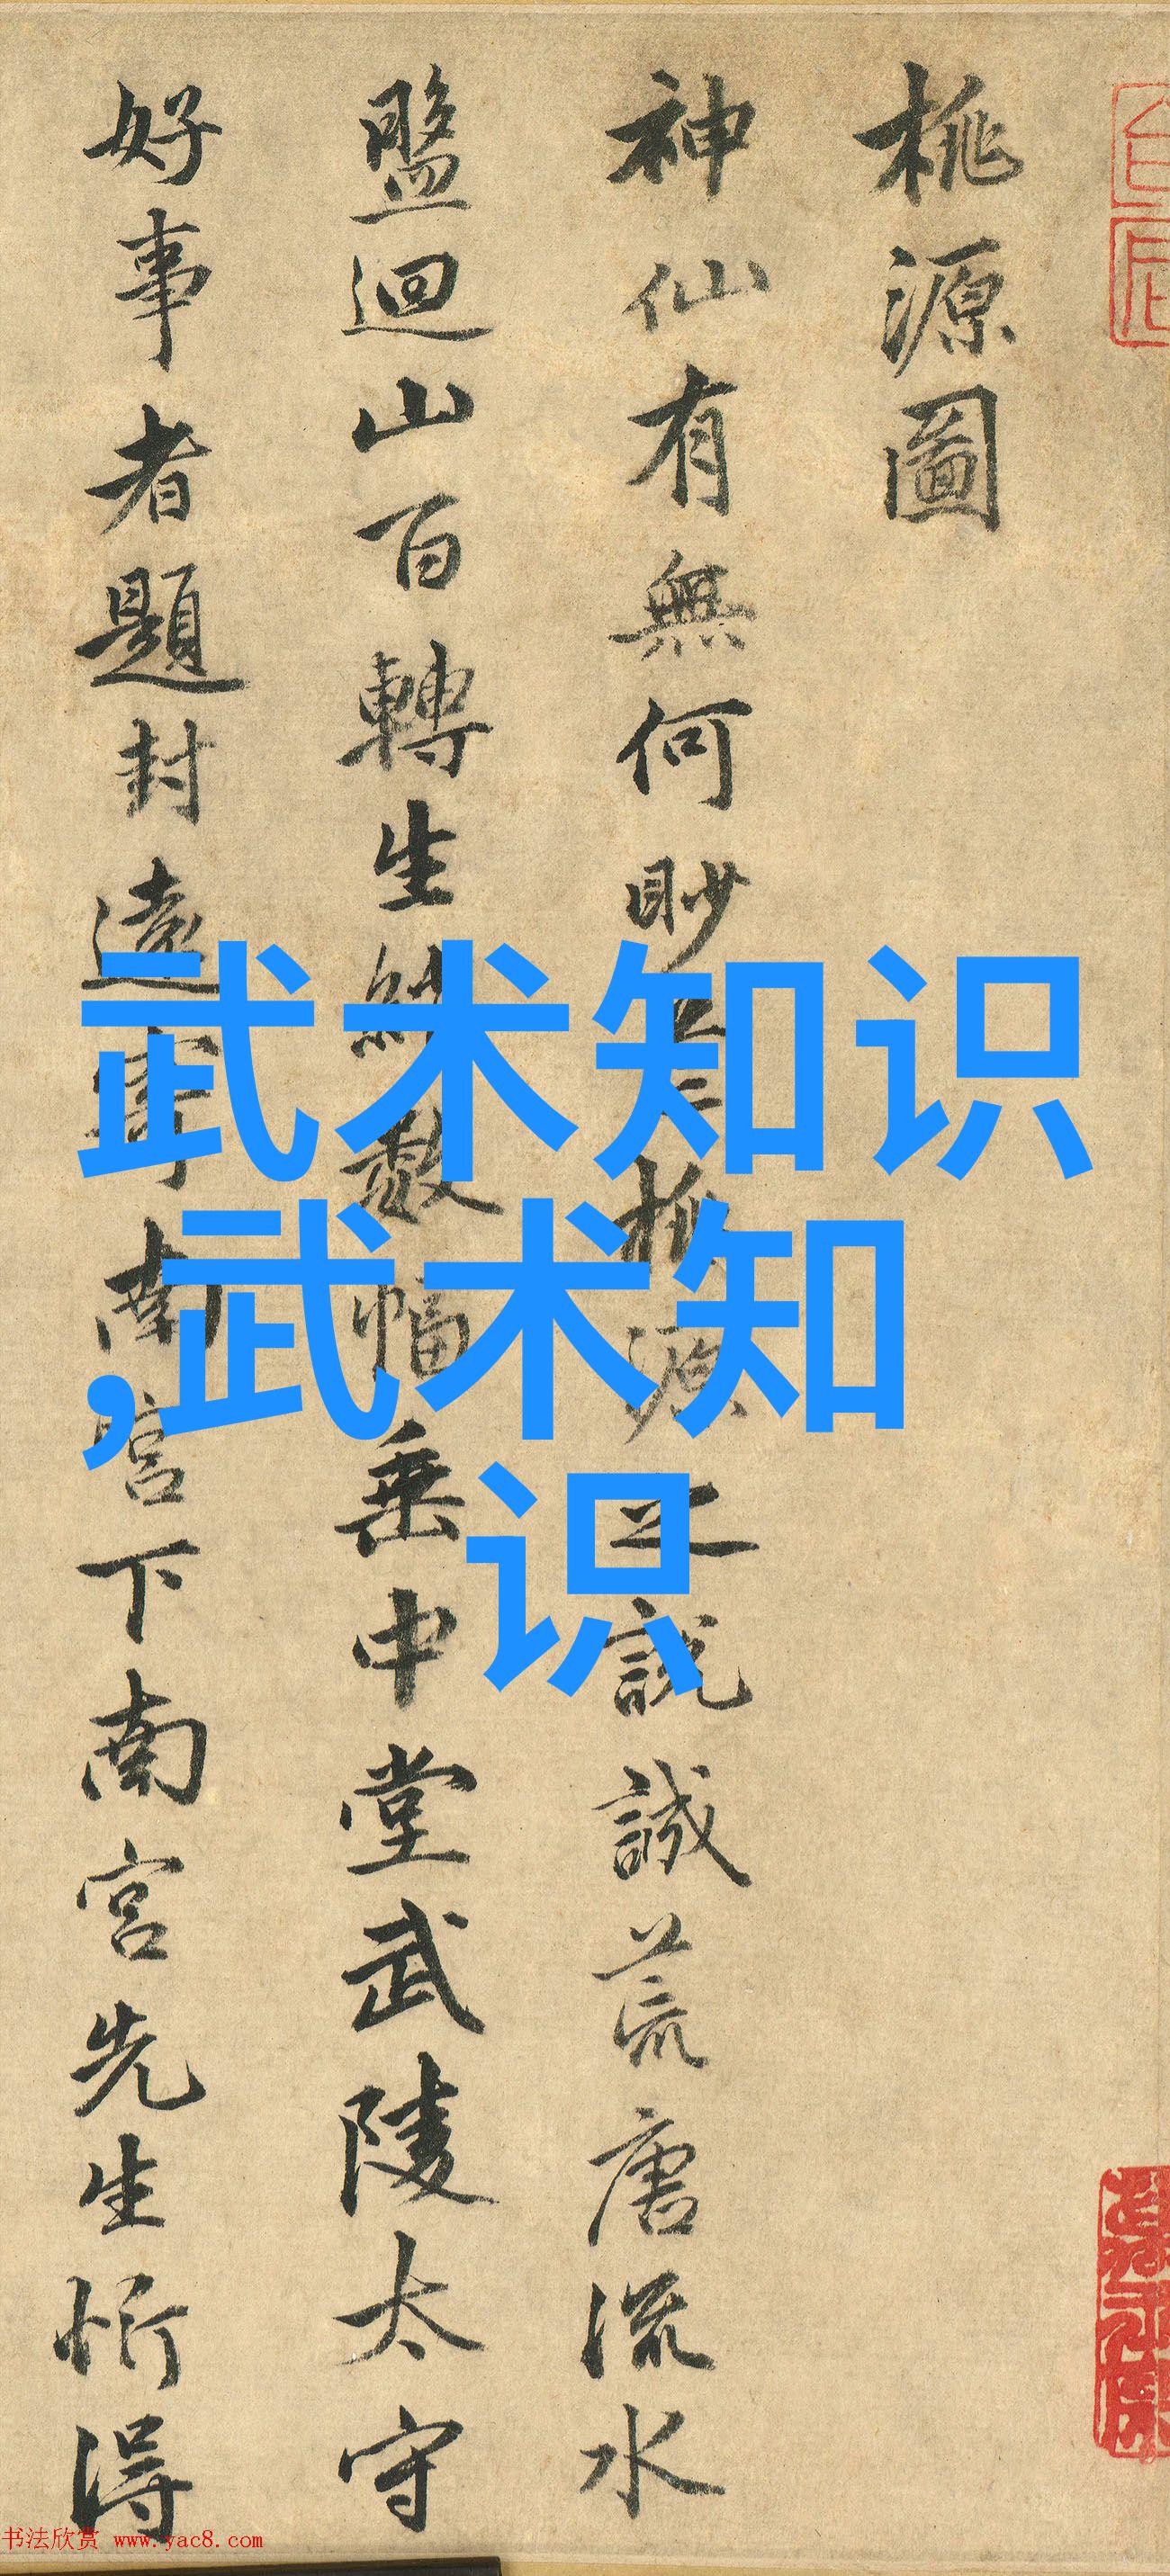 桃源圖
神仙有無何眇芒桃源之説誠荒唐流水
盤迴山百轉生綃數幅垂中堂武陵太守
好事者題封遠寄南宮下南宮先生忻得
武术知识
,武术知
识
书法欣赏 www.yac8.com